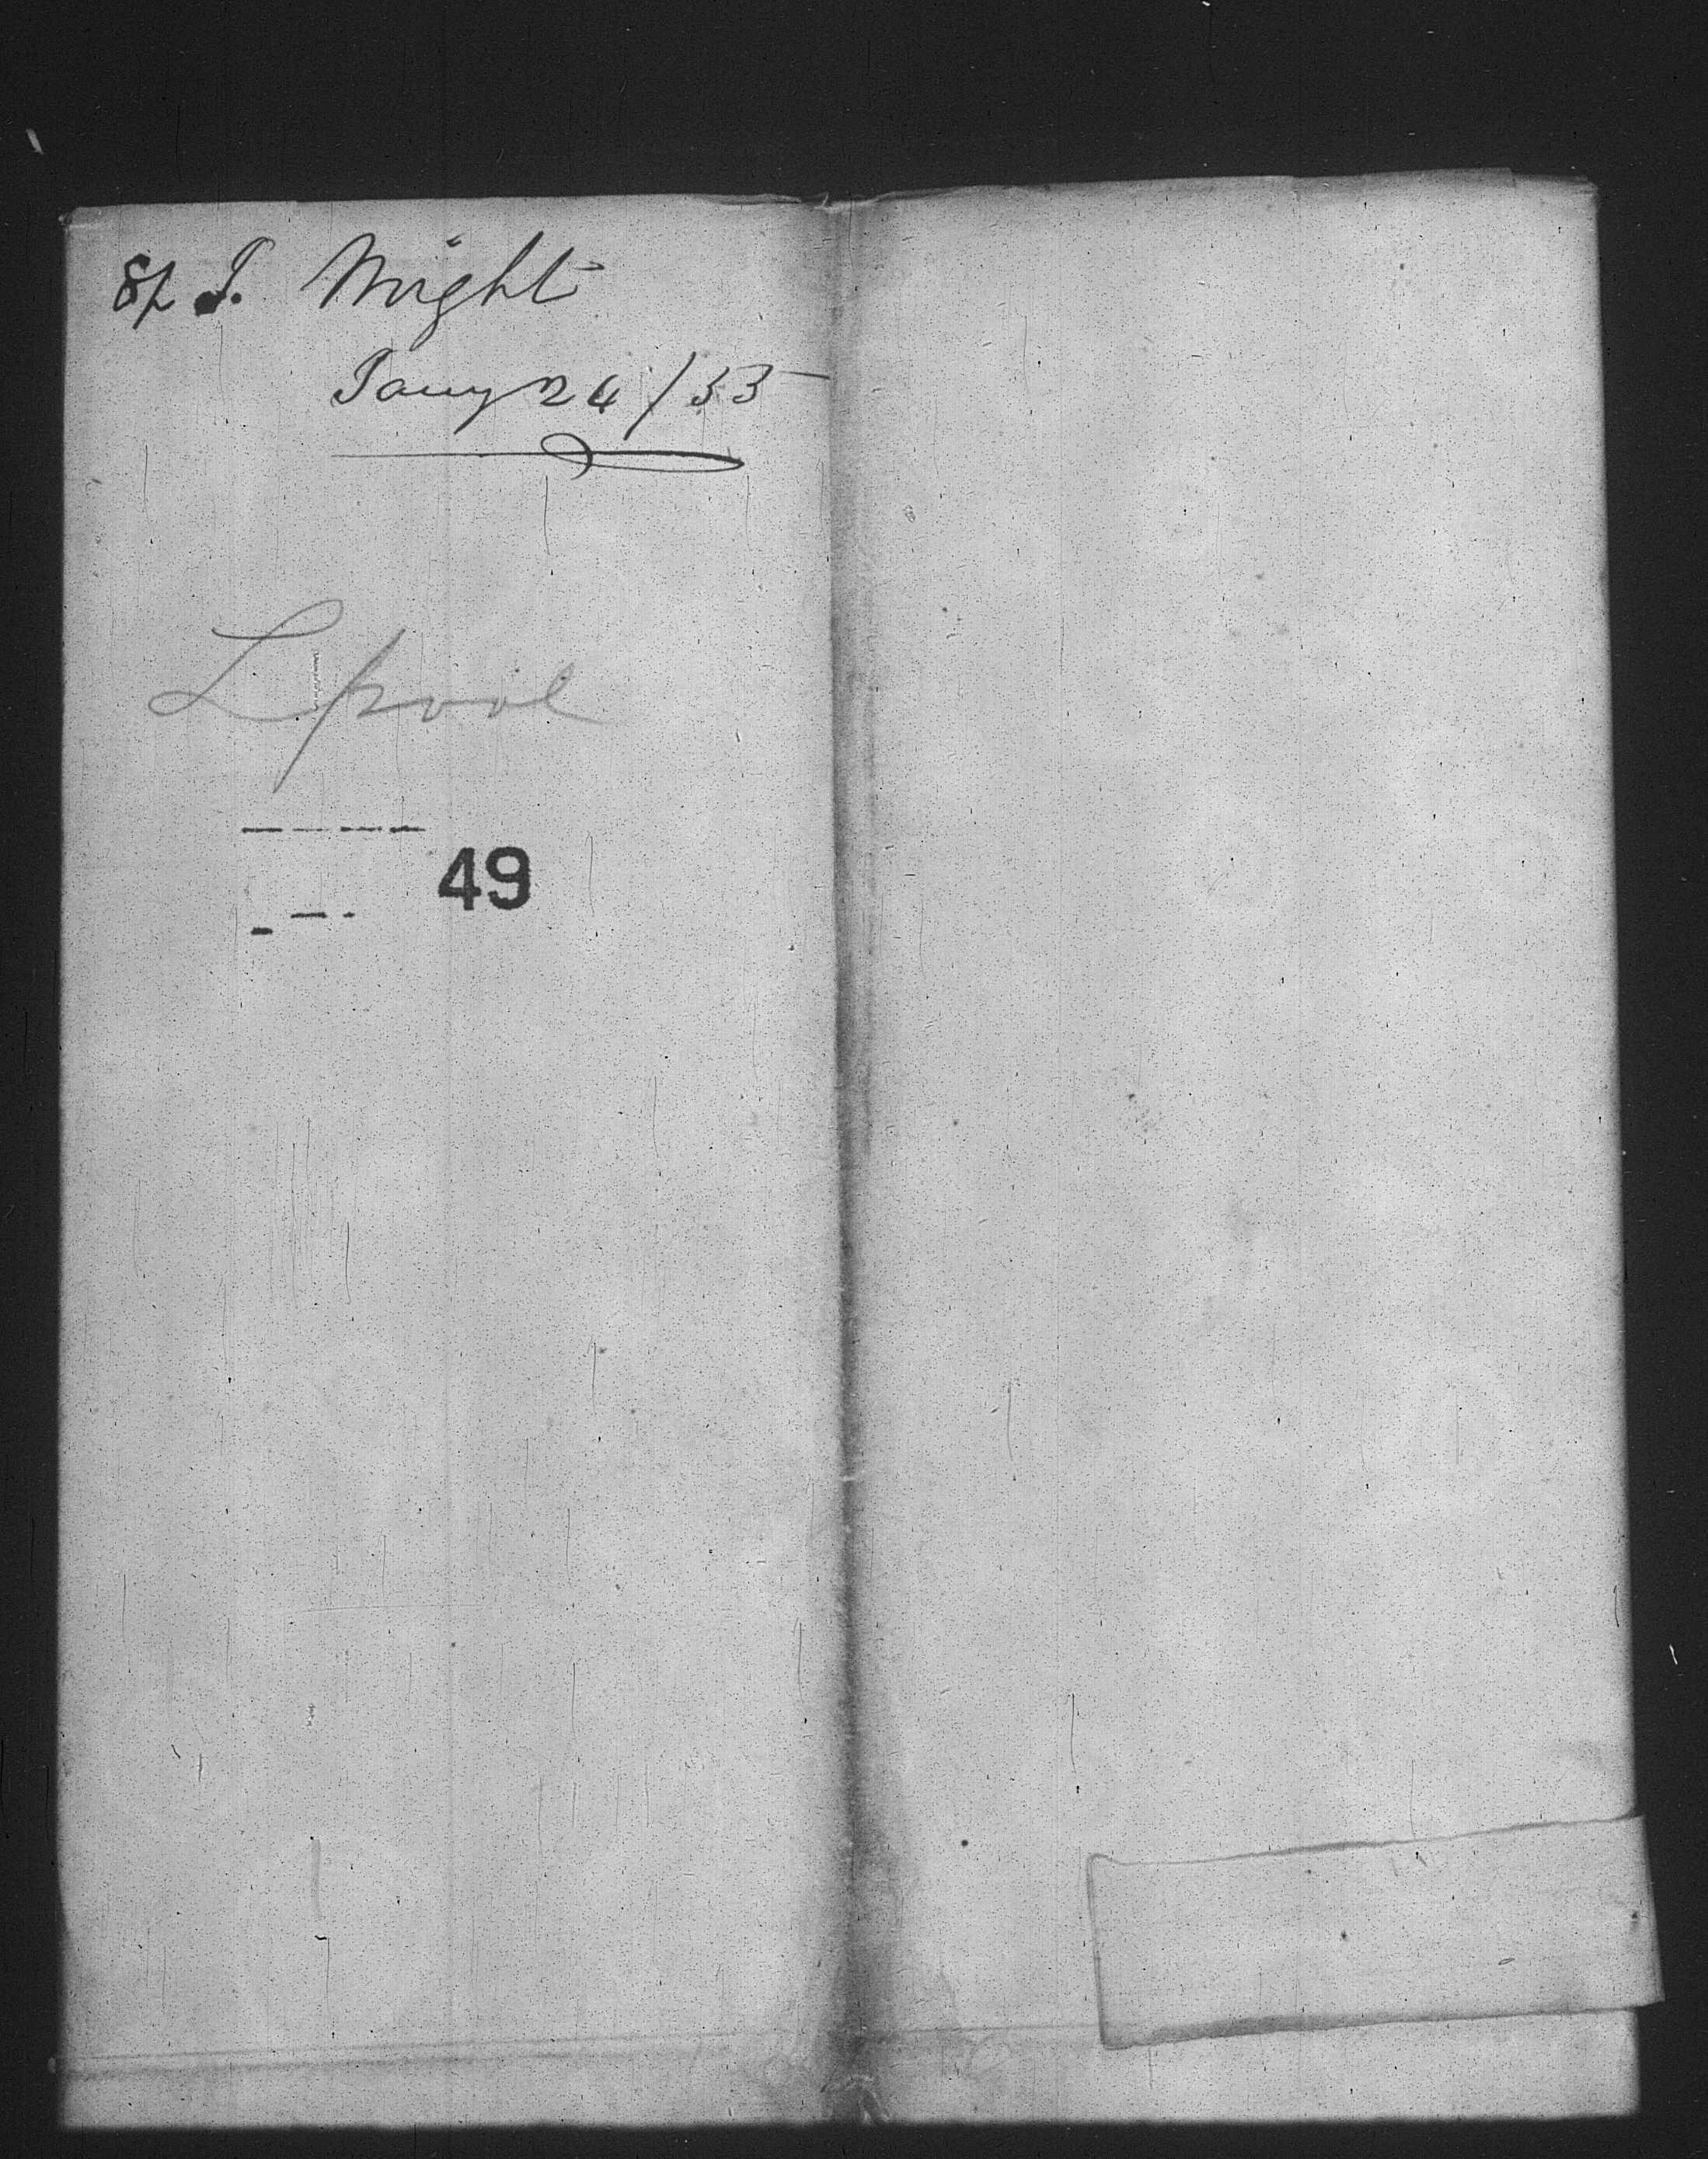 Sp J. Wright
Jany 24/55
Lpool
49